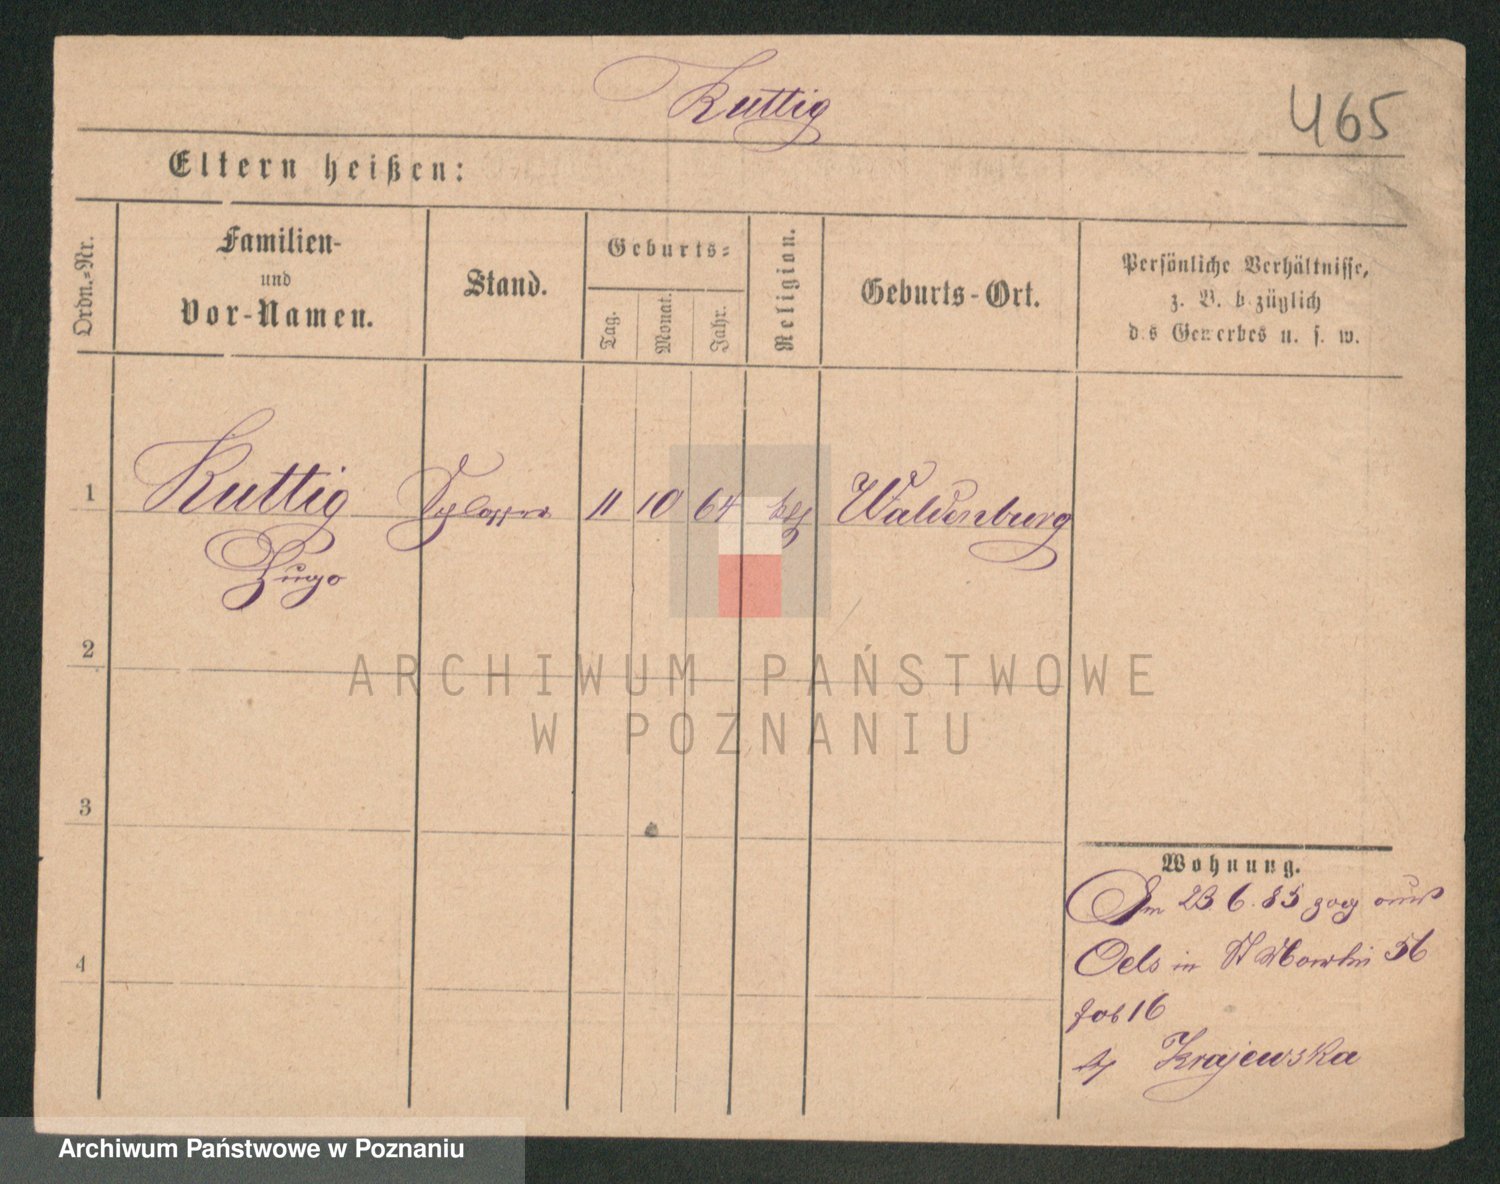 Kuttig
465
Eltern heißen:
Ordn.=Nr.
Familien-
und
Vor-Namen.
Stand.
Geburts=
Tag.
Monat.
Jahr.
Religion.
Geburts-Ort.
Persönliche Verhältnisse,
z. B. bezüglich
des Gewerbes u. s. w.
1
Kuttig
Schlosser
11
10
64
kth
Waldenburg
Hugo
2
3
4
Wohnung.
Am 23.6.85 zog aus
Oels in St Martin 56
16
Krajewska
ARCHIWUM PAŃSTWOWE
W POZNANIU
Archiwum Państwowe w Poznaniu